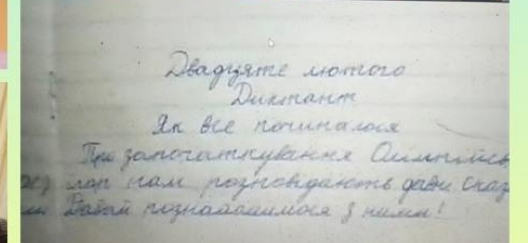 Двадцяте лютого
Диктант
Як все починалося
Про започаткування Олімпійсь
ких ігор нам розповідають давні сказ
Давай познайомимося з ними!